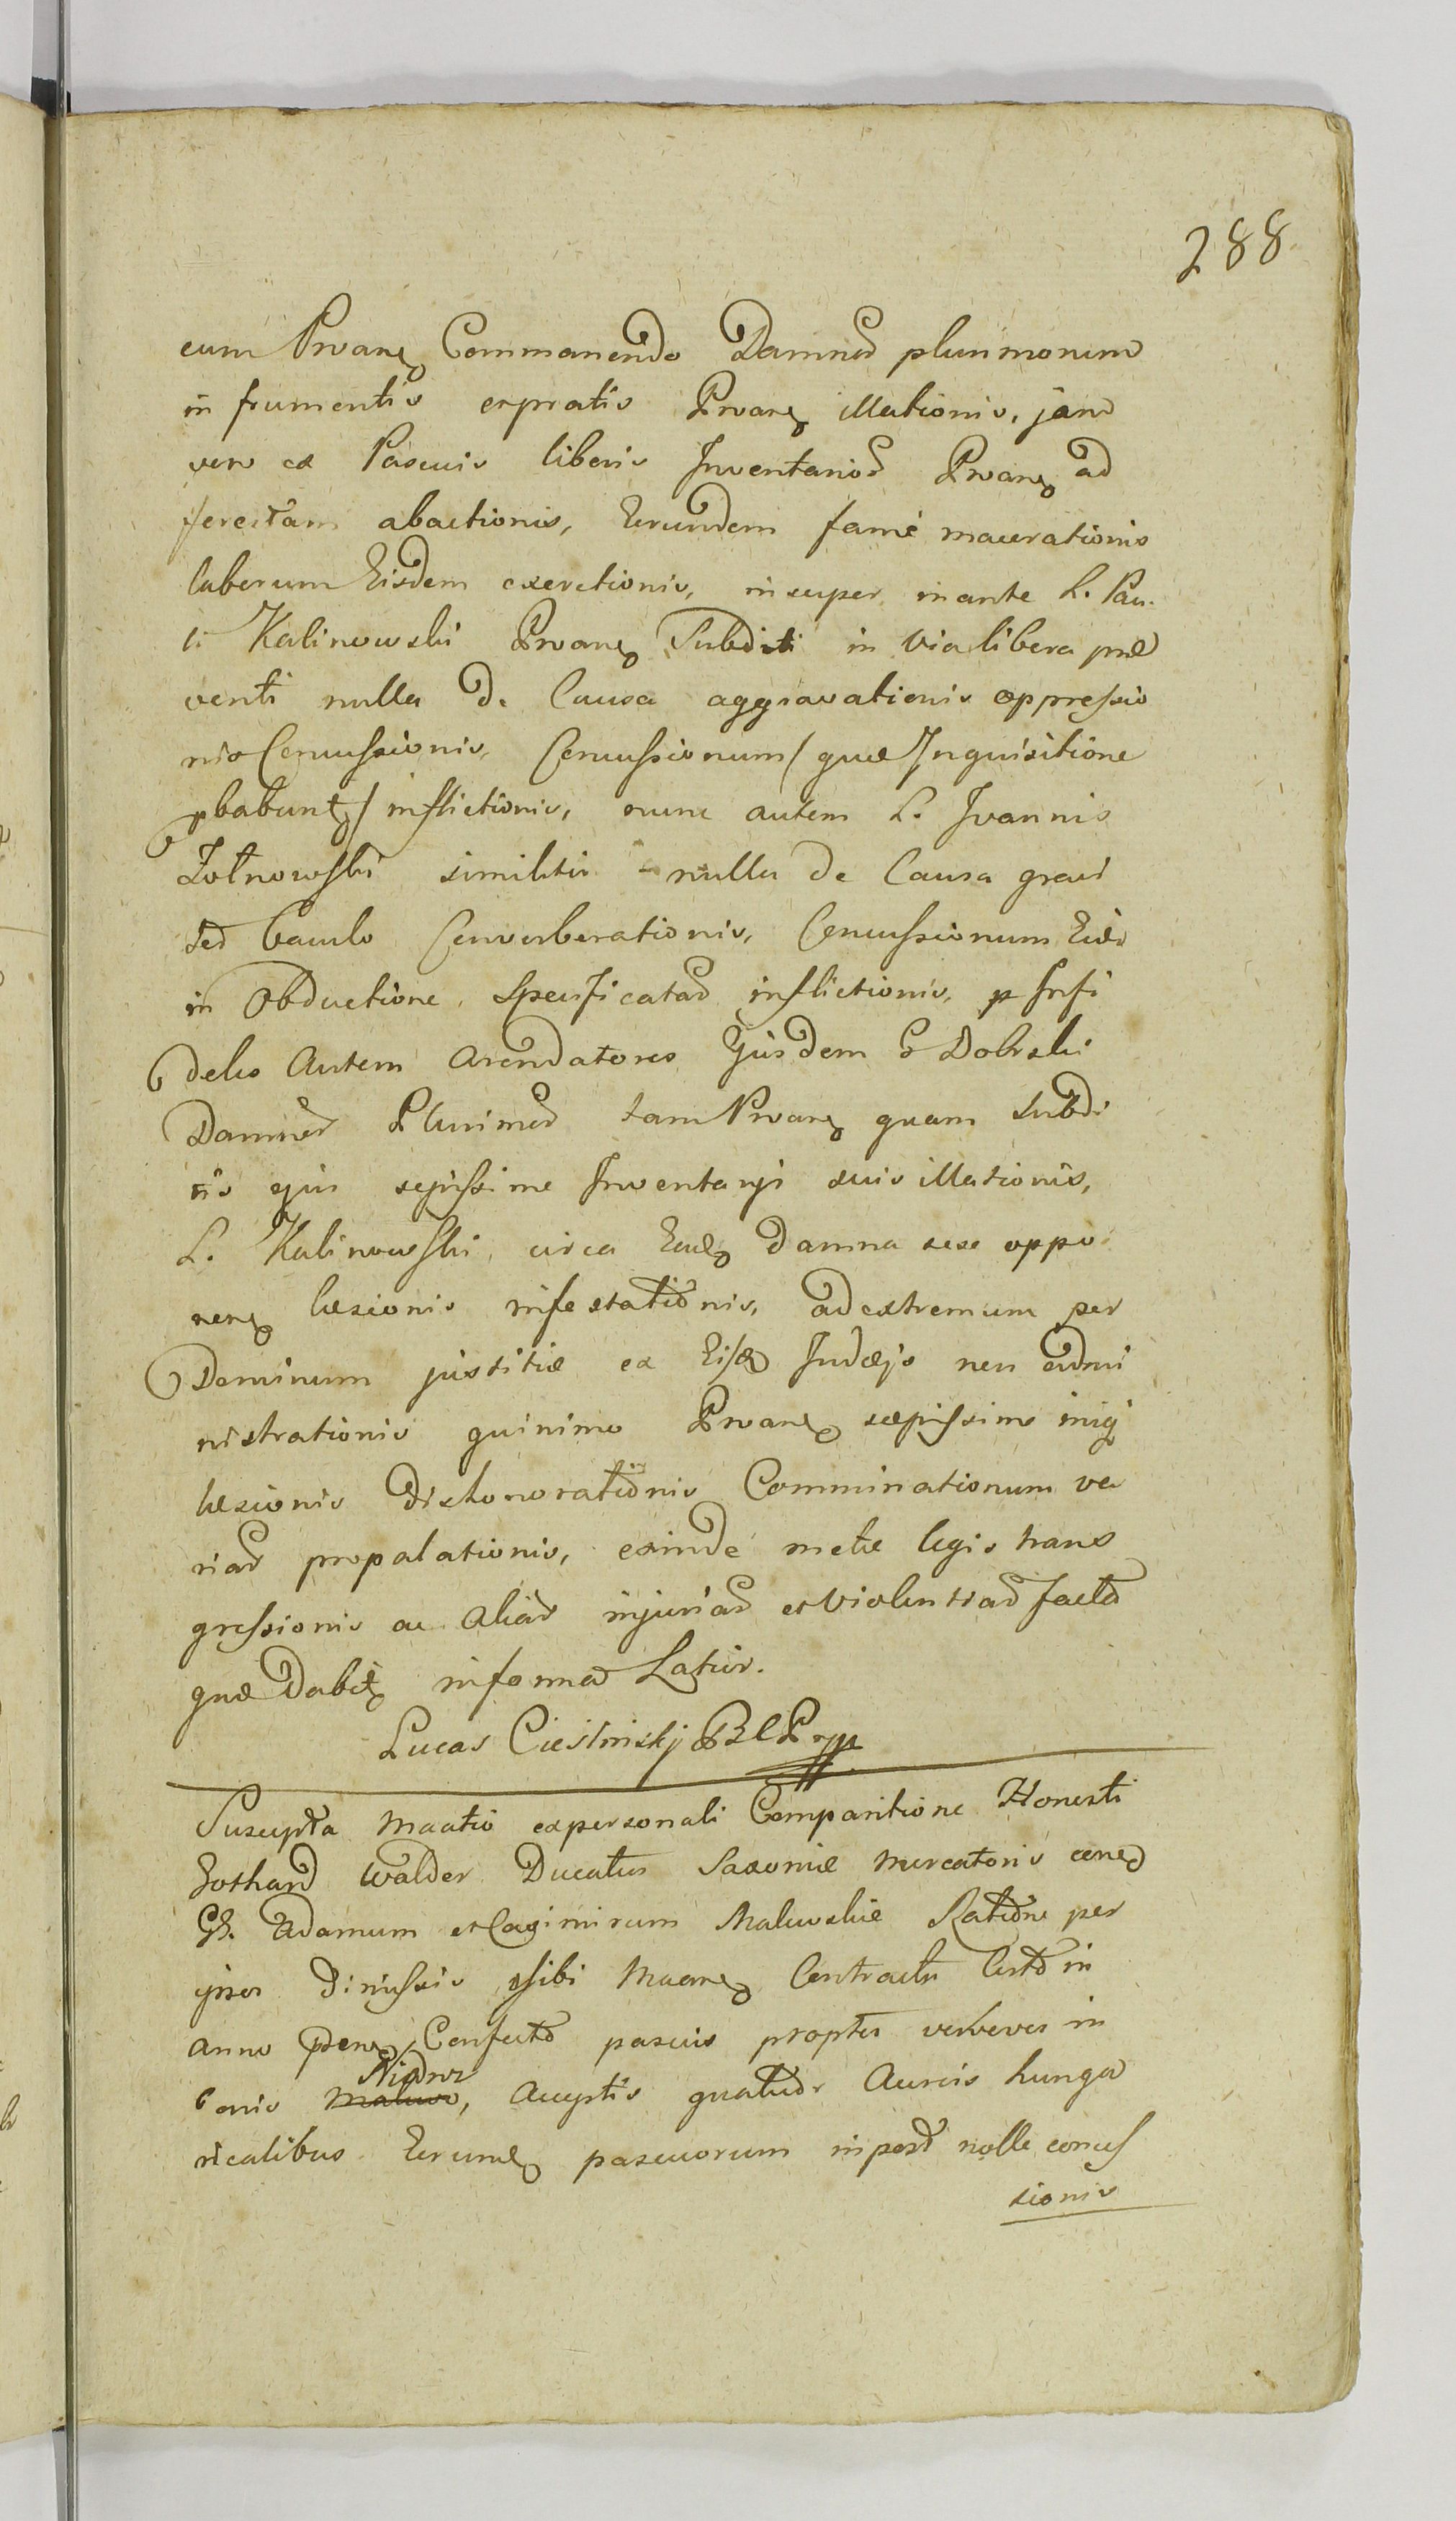 288
cum Proane Commanendo Damnor plurimorum
in frumentis et pratis Proane illationis, jam
vero ex Pascuis liberis Inventarior Proane ad
abactionis, Eorundem famè macerationis
laborum Eisdem exerctionis, insuper in ante L. Pau
li Kalinowski Proane Subditi in via libera præ
venti nulla de Causa aggravationis oppressio
nis Concussionis, Concussionum / quæ Inquisitione
pbabunt / inflictionis, nunc autem L. Ivannis
Zołnowski similiter nulla de Causa gravi
sed baculo Converberationis, Concussionum Eid
in Obductione Specificatar inflictionis, p Infi
deles Autem Arendatores Ejusdem G Dobski
Damnor Plurimor tam Proane quam subdi
tis ejus sepissime Inventarji suis illationis,
L. Kalinowski circa Ead damna sese oppo
nen læsionis infestationis, ad extremum per
Dominum justitiæ ex Eisd Judæjs non admi
nistrationis quinimo Proane sæpissime iniq
læsionis Dishonorationis Comminationum va
riar propalationis, exinde metæ legis trans
gressionis ac aliar injuriar et violentiar factor
quæ Dabit in forma Latior.
Lucas Ciesinskj
Suscepta Maatio ex personali Comparitione Honesti
Gothard Walder Ducatus Saxoniæ Mercatoris coned
G. Adamum et Cazimirum Maluskie Ratione per
ipsos dimissis sibi Maane Contractu Certo in
anno pen Confecto pascuis propter verveces in
bonis Maluse, Acceptis quatuor Aureis hunga
Nidrz
ricalibus Eorund pascuorum in post nolle concess
sionis